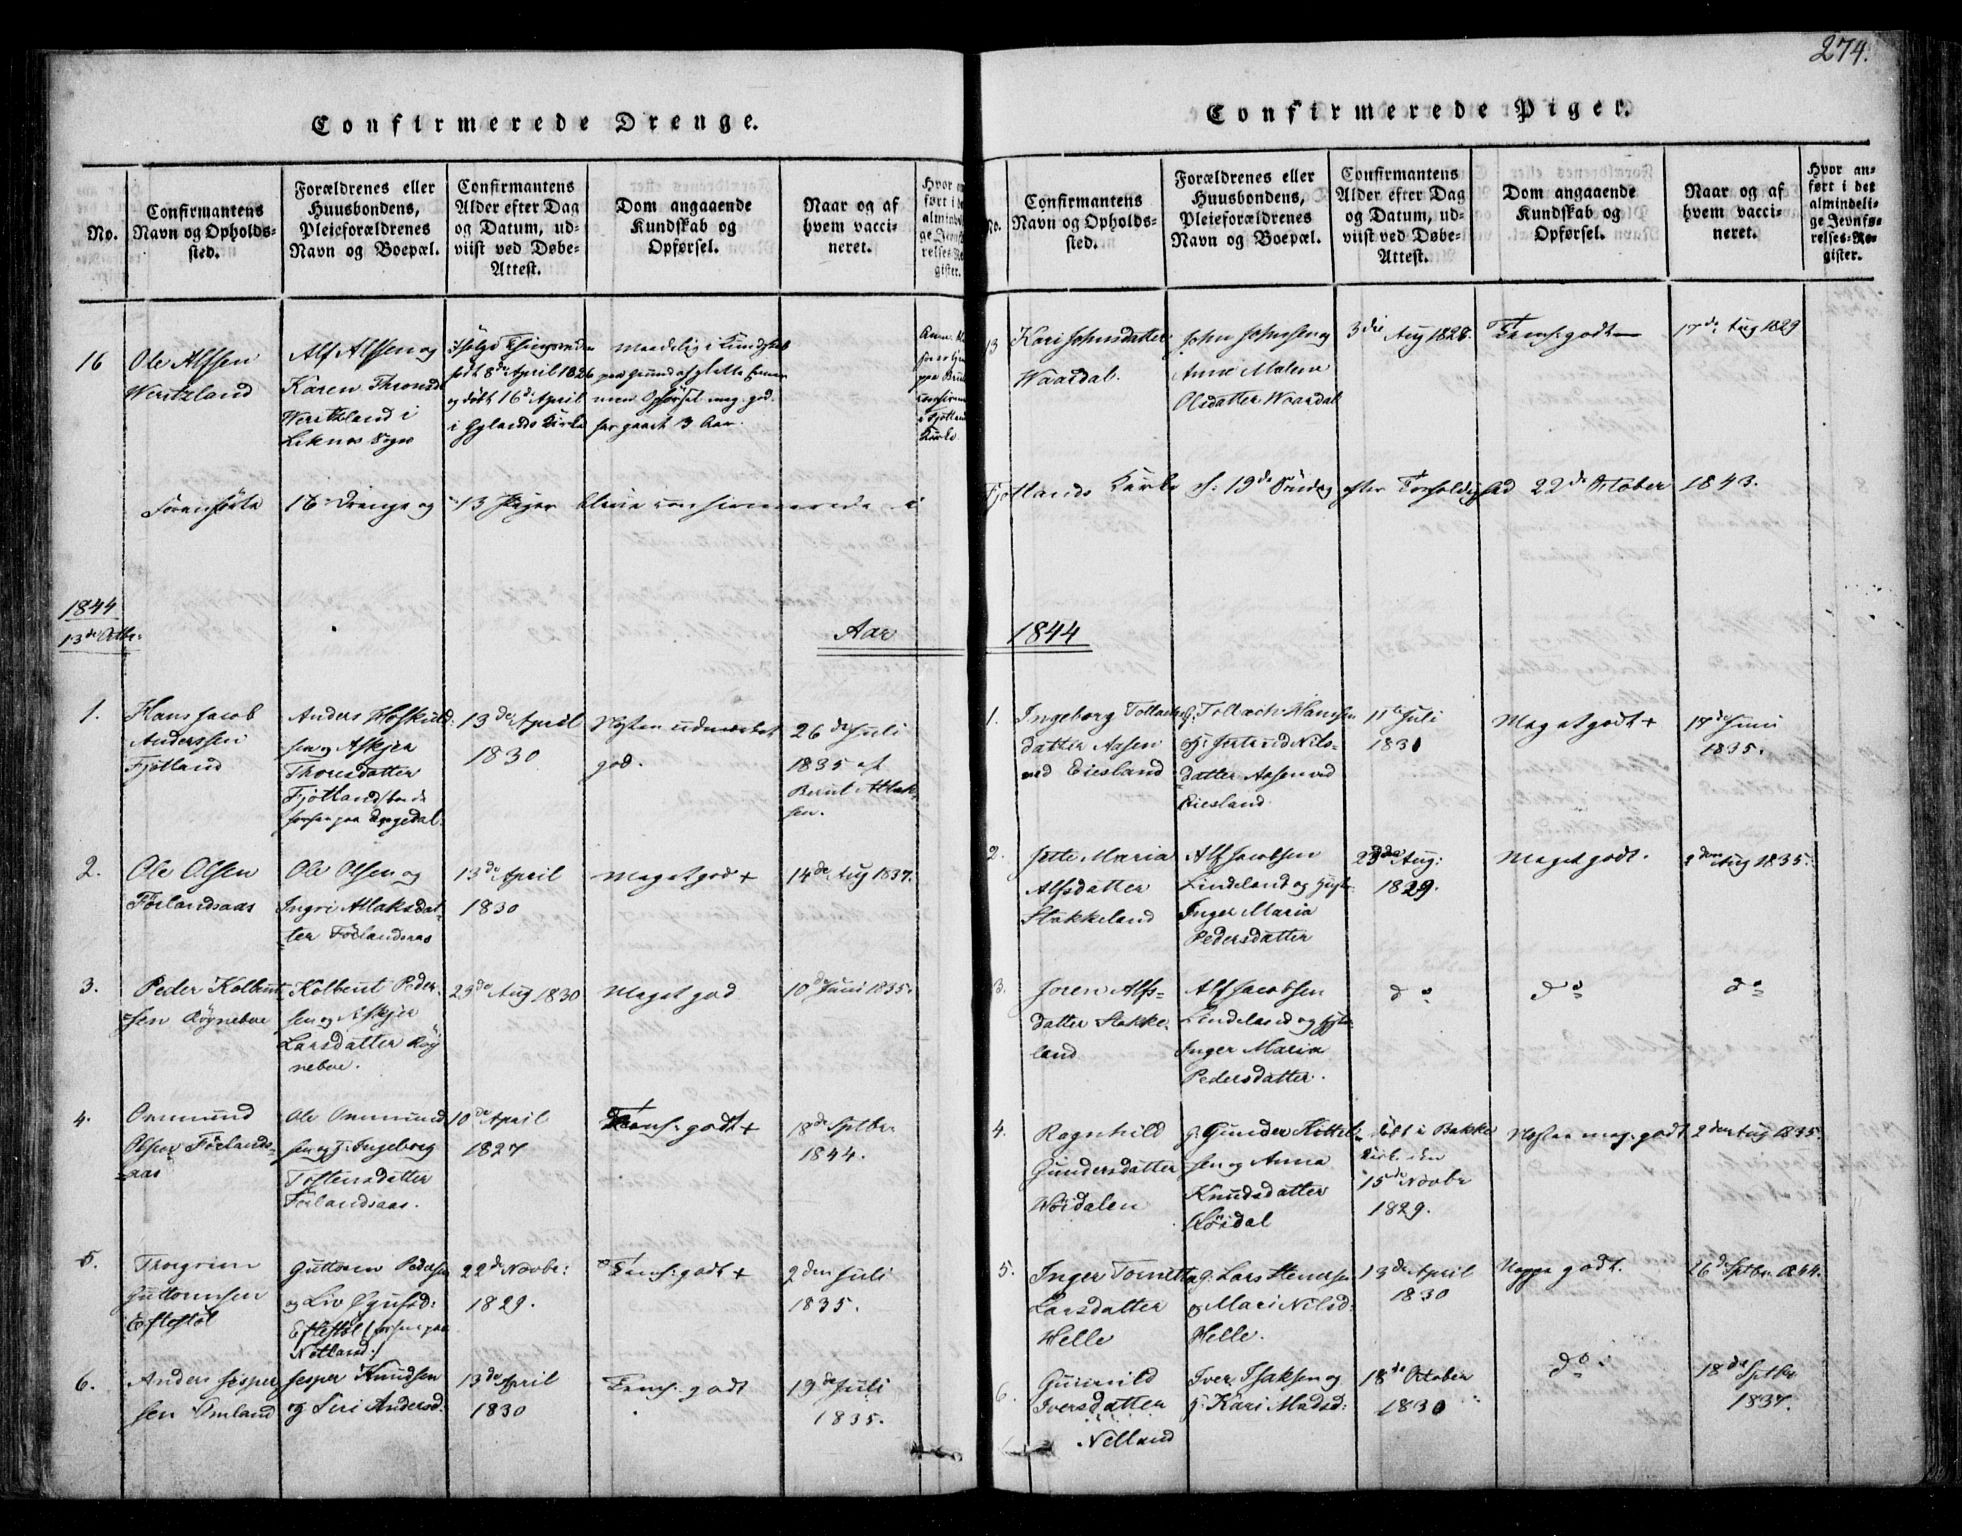 274.
Confirmerede Drenge.
No.
Confirmantens
Navn og Opholds-
sted.
Forældrenes eller
Huusbondens,
Pleieforældrenes
Navn og Boepæl.
Confirmantens
Alder efter Dag
og Datum, ud-
viist ved Døbe-
Attest.
Dom angaaende
Kundskab og
Opførsel.
Naar og af
hvem vacci-
neret.
16
Ole Alfsen
Alf Alfsen og
Karen
i
Liknes Sogn
født 8de April 1826
og døbt 16de April
i Gylands Kirke
Maadelig i Kundskab
har gaaet 3 Aar.
i Fjotland
Kirke
Foranførte 16 Drenge og 13 Piger bleve confirmerede i
1844
13de Octbr:
Aar
1.
Hans Jacob
Anderssen
Fjotland
Anders Hoskuld-
sen og Askjer
Thorsdatter
Fjotland
13de April
1830
Næsten udmærket
god.
26de Juli
1835 af
Bernt Atlak-
sen.
2.
Ole Olsen
Førlandsaas
Ole Olsen og
Ingri Atlaksdat-
ter Førlandsaas
13de April
1830
Meget god +
14de Aug 1837.
3.
Peder Kolbent-
sen Røgneboe
Kolbent Peder-
sen og Askjer
Larsdatter Røg
neboe.
29de Aug 1830
Meget god
10de Juni 1835.
4.
Ommund
Olsen Førlands-
aas
Ole Ommund
sen og g: Ingeborg
Tostensdatter
Førlandsaas.
10de April
1827
Tems: godt +
18de Sptbr.
1844.
5.
Thorgrim
Guttormsen
Eftestøl
Guttorm Pedersen
og Liv
Eftestøl (forhen paa
Netland.)
22de Novbr:
1829.
Tems: godt +
2den Juli
1835.
6.
Anders Jesper
sen Omland
Jesper Knudsen
og Siri Andersd:
13de April
1830
Tems: godt
19de Juli
1835.
Confirmerede Piger.
No.
Confirmantens
Navn og Opholds-
sted.
Forældrenes eller
Huusbondens,
Pleieforældrenes
Navn og Boepæl.
Confirmantens
Alder efter Dag
og Datum, ud-
viist ved Døbe-
Attest.
Dom angaaende
Kundskab og
Opførsel.
Naar og af
hvem vacci-
neret.
Hvor an-
ført i det
almindeli-
ge Jevnfø-
relses-Re-
gister.
13
Kari Johnsdatter
Waardal.
John Johnsen og
Anne Malene
Olsdatter Waardal
3die Aug 1828.
Tems: godt
17de Aug 1829
Fjotlands Kirke 19de Søndag efter 22de October 1843.
1844
1.
Ingeborg Tollachs
datter Aasen
ved Eiesland
Tollach Hansen
Jertrud Nils-
datter Aasen ved
Eiesland.
11te Juli
1830
Meget godt +
17de Juni
1835.
2.
Jette Maria
Alfsdatter
Stakkeland
Alf Jacobsen
Lindeland og
Inger Maria
Pedersdatter
Aug:
1829.
Meget godt.
Aug 1835.
3.
Joren Alfs-
datter Stakke-
land
Alf Jacobsen
Lindeland og
Inger Maria
Pedersdatter.
do
do
do
4.
Ragnhild
Gundersdatter
g: Gunder Kittel
sen og Anna
Knudsdatter
døbt i Bakke
Kirke den
15de Novbr
1829.
Næsten meg: godt
2den Aug 1835.
5.
Inger Tomette
Larsdatter
Helle
g: Lars
og Mari Nilsd:
Helle.
13de April
1830
Noppe godt.
16de Sptbr. 1844.
6.
Gunvild
Iversdatter
Netland
Iver Isaksen og
g: Kari Madsd:
18de October
1830
do
18de Sptbr
1837.